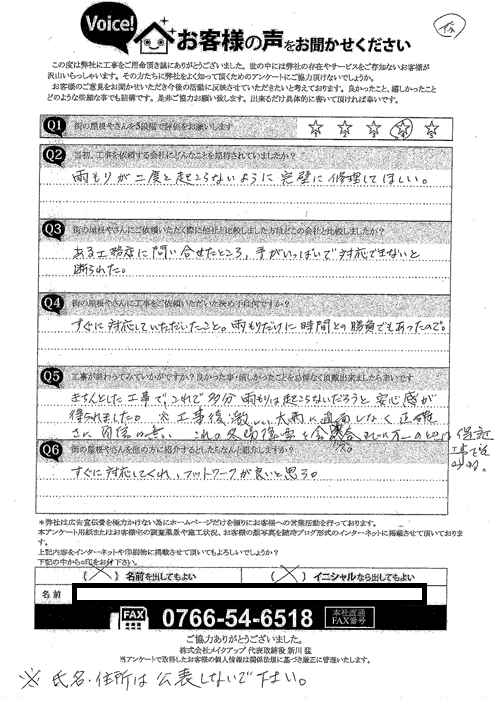 Voice!
お客様の声をお聞かせください
この度は弊社に工事をご用命頂き誠にありがとうございました。世の中には弊社の存在やサービスをご存知ないお客様が
沢山いらっしゃいます。その方たちに弊社をよく知って頂くためのアンケートにご協力頂けないでしょうか。
お客様のご意見をお聞かせいただき今後の活動に反映させていただきたいと考えております。良かったこと、嬉しかったこと
どのような些細な事でも結構です。是非ご協力お願い致します。出来るだけ具体的に書いて頂ければ幸いです。
Q1 街の屋根やさんを5段階で評価をお願いします
Q2 当初、工事を依頼する会社にどんなことを期待されていましたか?
雨もりが二度と起こらないように完璧に修理してほしい。
Q3 街の屋根やさんにご依頼いただく際に他社と比較しました方はどこの会社と比較しましたか?
ある工務店に問い合せたところ、手がいっぱいで対応できないと
断られた。
Q4 街の屋根やさんに工事をご依頼いただいた決め手は何ですか?
すぐに対応していただいたこと。雨もりだけに時間との勝負でもあったので。
Q5 工事が終わってみていかがですか?良かった事・嬉しかったことを忌憚なく頂戴出来ましたら幸いです
きちんとした工事で、これで多分雨もりは起こらないだろうと安心感が
得られました。※工事後、激しい大雨に直面しなく正確
Q6 街の屋根やさんを他の方に紹介するとしたらなんと紹介しますか?
すぐに対応してくれ、フットワークが良いと思う。
＊弊社は広告宣伝費を極力かけない為にホームページだけを頼りにお客様への営業活動を行っております。
本アンケート用紙またはお客様宅の調査風景や施工状況、お客様の顔写真を随時ブログ形式のインターネットに掲載させて頂いております。
上記内容をインターネットや印刷物に掲載させて頂いてもよろしいでしょうか?
下記の中から○印をお付け下さい。
( ) 名前を出してもよい ( ) イニシャルなら出してもよい
名前
FAX 0766-54-6518 本社直通 FAX番号
ご協力ありがとうございました。
株式会社メイクアップ 代表取締役 新川 猛
当アンケートで取得したお客様の個人情報は関係法規に基づき厳正に管理いたします。
※氏名・住所は公表しないで下さい。